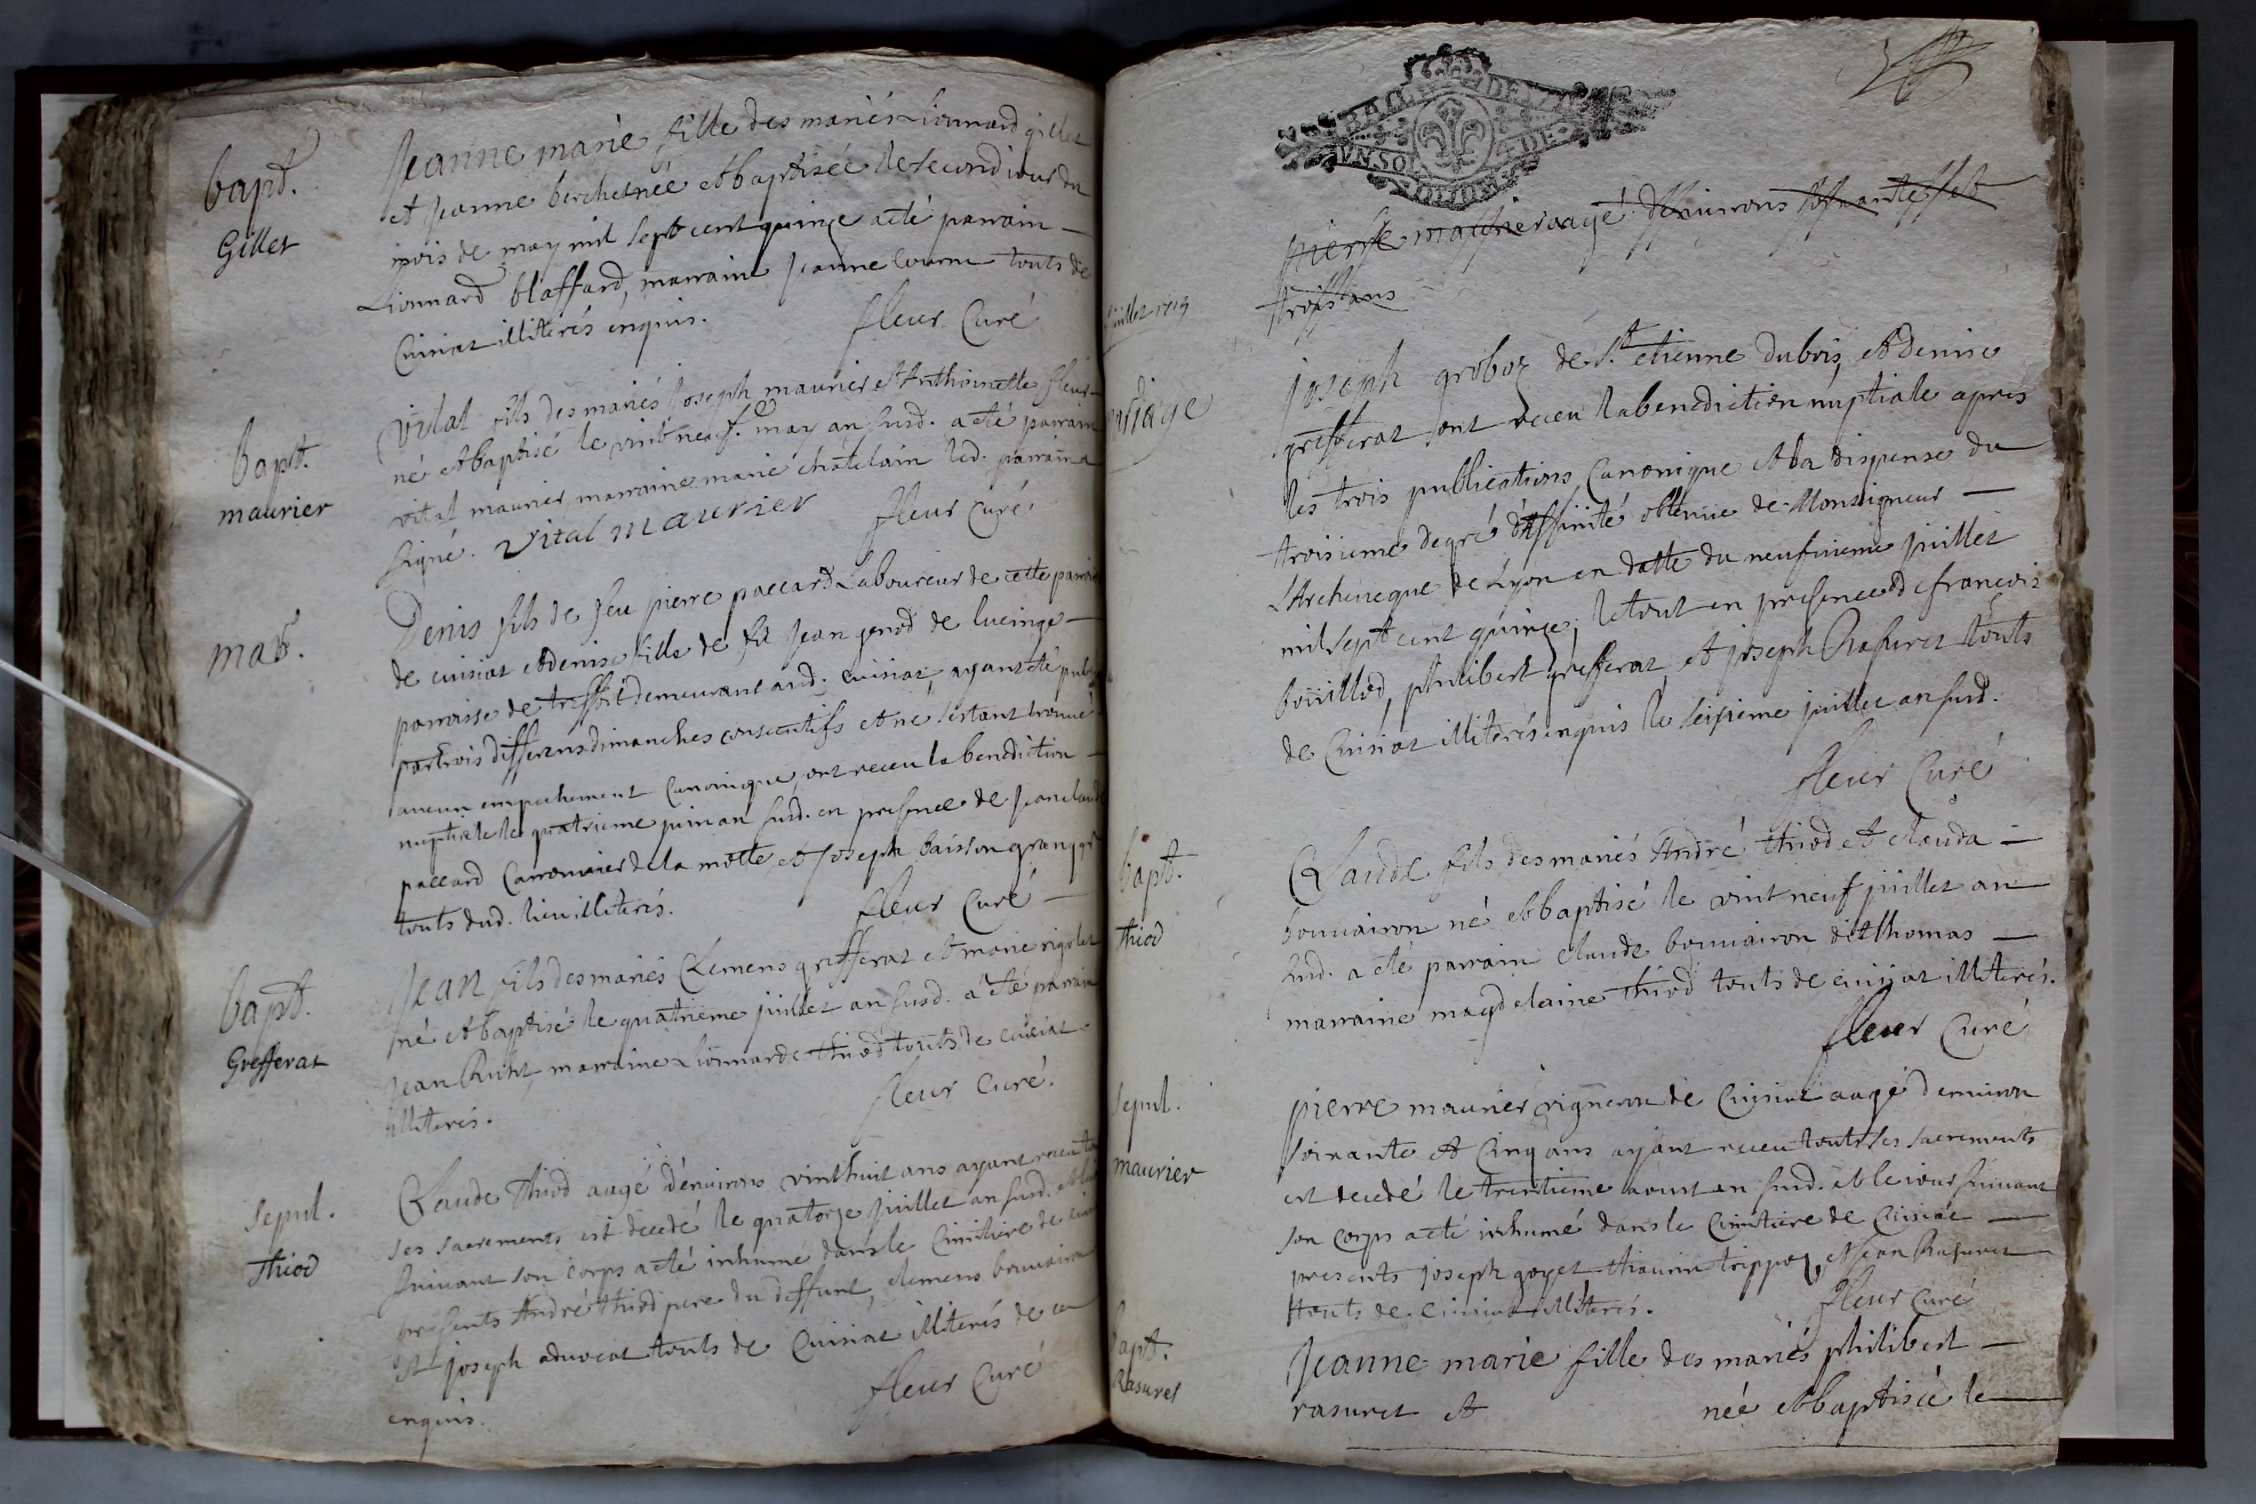 bapt.
Gillet
Jeanne marie fille des mariés Lionnard gillet
et Jeanne berchet née et baptisée le second iour du
mois de may mil sept cent quinze a eté parrain
Lionnard blaffard, marraine Jeanne Courne touts de
Cuisiat illiterés enquis. fleur Curé
bapt.
maurier
Vital fils des mariés Joseph maurier et Anthoinette fleur
né et baptisé le vint neuf. may an susd. a eté parrain
vital maurier, marraine marie chatelain led. parrain a
signé. Vital maurier fleur Curé
mar.
Denis fils de feu pierre paccard Laboureur de cette parroisse
de cuisiat et denise fille de fû Jean genod de lucinge
parroisse de treffort demeurant aud. cuisiat, ayant eté publiés
par trois differens dimanches consecutifs et ne s'estant trouvé
aucun empechement Canonique, ont receu la benediction
nuptiale le quatrieme juin an susd. en presence de Jean claude
paccard Canonnier de la motte et Joseph baisson granger
touts dud. lieu illiterés. fleur Curé
bapt.
Grefferat
Jean fils des mariés Clemens grefferat et marie rigolet
né et baptisé le quatrieme juillet an susd. a eté parrain
Jean Ruht, marraine Lionnarde thiod touts de cuisiat
illiterés. fleur Curé.
sepul.
Thiod
Claude Thiod aagé d'environs vint huit ans ayant receu touts
ses sacrements est decedé le quatorze juillet an susd. et le
suivant son corps a eté inhumé dans le Cimitiere de cuisiat
presents André thiod pere du deffunt, clemens bouvairon
et joseph advocat touts de Cuisiat illiterés de ce
enquis. fleur Curé
pierre maurier aagé d'environs soixante et
trois ans
juillet 1715
mariage
joseph groboz de St. etienne dubois, et Denise
grefferat ont receu la benediction nuptiale apres
les trois publications Canonique et la dispense du
troisieme degré d'affinité obtenue de Monseigneur
L'Archeveque de Lyon en datte du neufvieme juillet
mil sept cent quinze, le tout en presence de francois
bovillod, philibert grefferat, et joseph Rasuret touts
de Cuisiat illiterés enquis le seizieme juillet an susd.
fleur Curé
bapt.
thiod
Claude fils des mariés André thiod et clauda
bouvairon né et baptisé le vint neuf juillet an
susd. a eté parrain claude bouvairon dit thomas
marraine magdelaine thiod touts de cuisiat illiterés.
fleur Curé
sepul.
maurier
pierre maurier vigneron de Cuisiat aagé d'environ
soixante et Cinq ans ayant receu touts ses sacrements
est decedé le trentieme aoust an susd. et le iour suivant
son corps a eté inhumé dans le Cimitiere de Cuisiat
presents joseph goyet thaurin trippoz, et Jean Rasuret
touts de Cuisiat illiterés. fleur Curé
bapt.
Rasuret
Jeanne marie fille des mariés philibert
rasuret et née et baptisée le